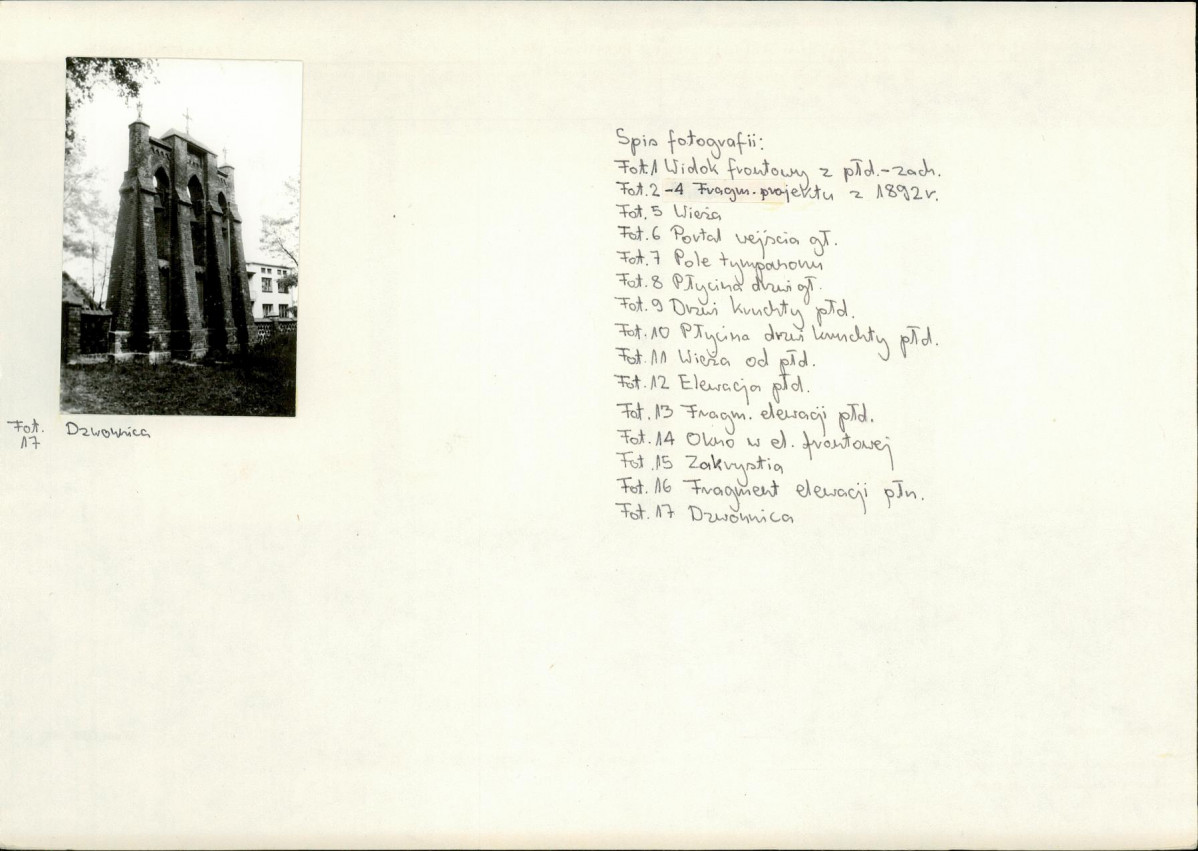 Fot.
17
Dzwonnica
Spis fotografii:
Fot.1 Widok frontowy z płd.-zach.
Fot.2-4 Fragm. projektu z 1892r.
Fot.5 Wieża
Fot.6 Portal wejścia gł.
Fot.7 Pole tympanonu
Fot.8 Płycina drzwi gł.
Fot.9 Drzwi kruchty płd.
Fot.10 Płycina drzwi kruchty płd.
Fot.11 Wieża od płd.
Fot.12 Elewacja płd.
Fot.13 Fragm. elewacji płd.
Fot.14 Okno w el. frontowej
Fot.15 Zakrystia
Fot.16 Fragment elewacji płn.
Fot.17 Dzwonnica